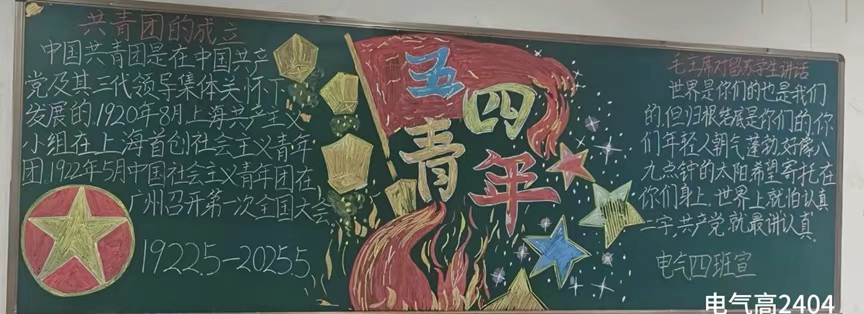 共青团的成立
中国共青团是在中国共产
党及其三代领导集体关怀下
发展的1920年8月上海共产主义
小组在上海首创社会主义青年
团1922年5月中国社会主义青年团在
广州召开第一次全国大会
1922.5-2025.5.
五四
青年
毛主席对留苏学生讲话
世界是你们的也是我们
的,但归根结底是你们的,你
们年轻人朝气蓬勃好像八
九点钟的太阳希望寄托在
你们身上.世界上就怕认真
二字,共产党就最讲认真.
电气四班宣
电气高2404